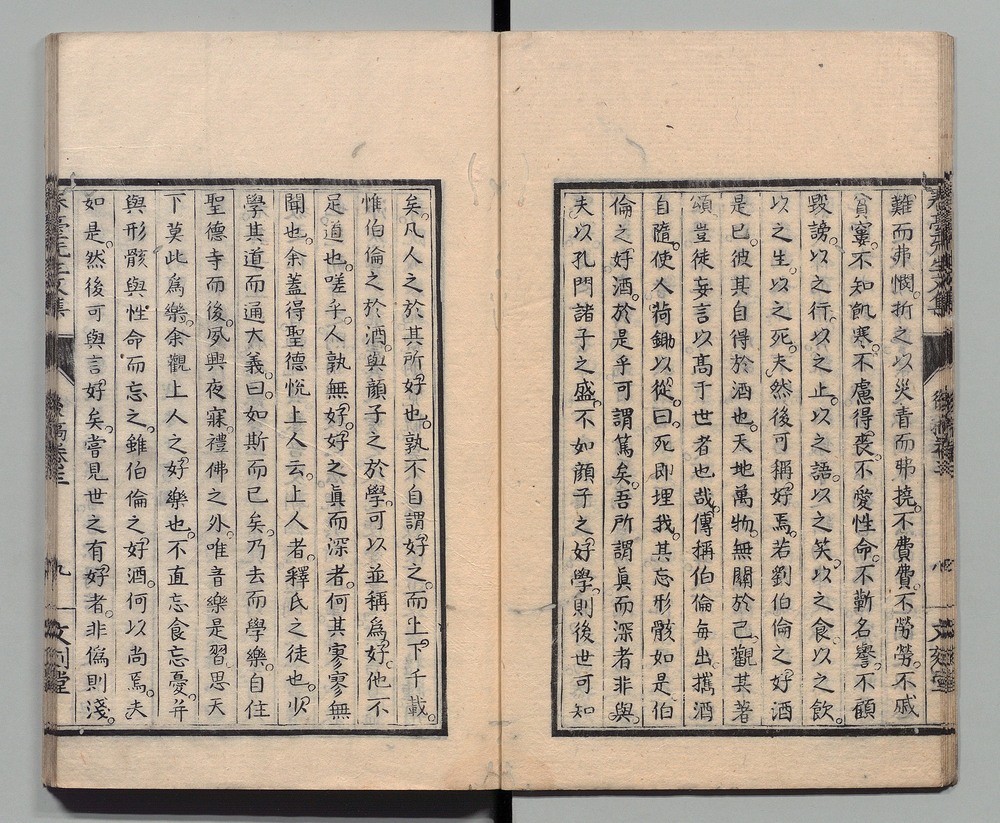 難而弗憫。折之以災眚而弗撓。不費費。不勞勞。不戚
貧窶。不知飢寒。不慮得喪。不愛性命。不蘄名譽。不顧
毀謗。以之行。以之止。以之語。以之笑。以之食。以之飲。
以之生。以之死。夫然後可稱好焉。若劉伯倫之好酒
是已。彼其自得於酒也。天地萬物。無關於己。觀其著
頌。豈徒妄言以高于世者也哉。傳稱伯倫每出攜酒
自隨。使人荷鋤以從。曰。死即埋我。其忘形骸如是。伯
倫之好酒。於是乎可謂篤矣。吾所謂眞而深者非與。
夫以孔門諸子之盛。不如顏子之好學。則後世可知
矣。凡人之於其所好也。孰不自謂好之。而上下千載。
惟伯倫之於酒。與顏子之於學。可以並稱爲好。他不
足道也。嗟乎。人孰無好。好之眞而深者。何其寥寥無
聞也。余蓋得聖德悅上人云。上人者。釋氏之徒也。少
學其道而通大義。曰。如斯而已矣。乃去而學樂。自住
聖德寺而後。夙興夜寐。禮佛之外。唯音樂是習。思天
下莫此爲樂。余觀上人之好樂也。不直忘食忘憂。并
與形骸與性命而忘之。雖伯倫之好酒。何以尚焉。夫
如是然後可與言好矣。嘗見世之有好者。非僞則淺。
後稿卷三
九
文刻堂